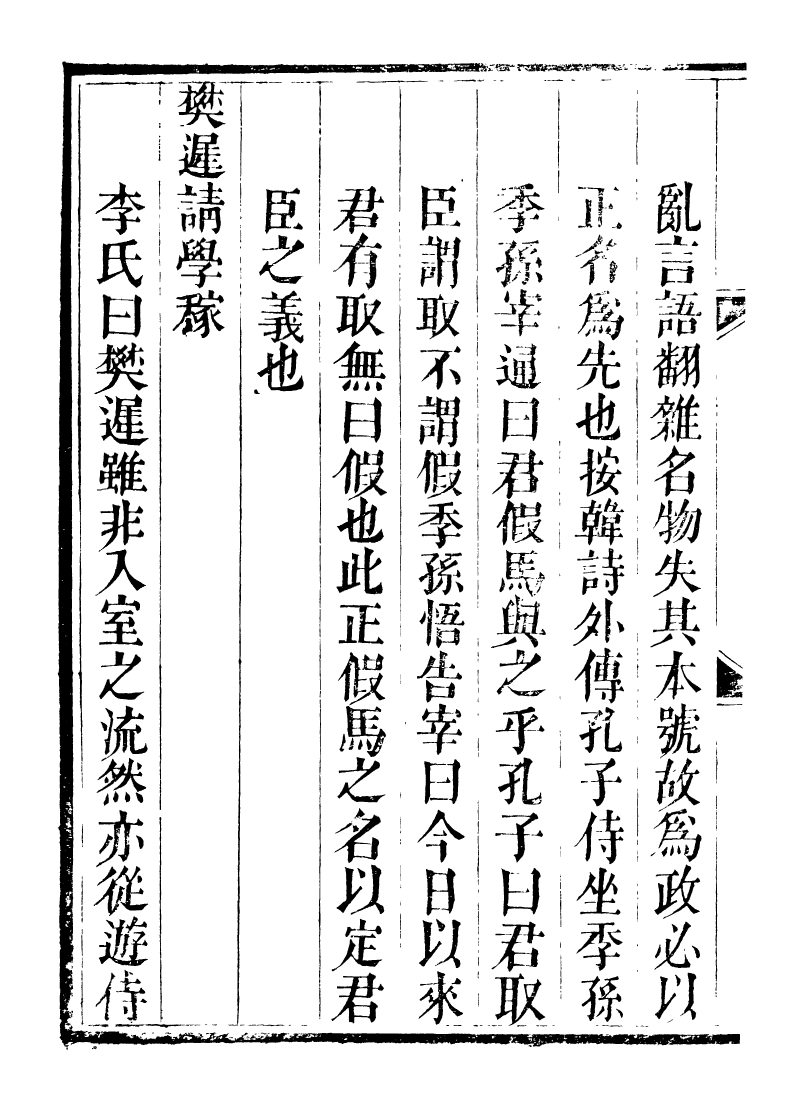 亂言語翻雜名物失其本號故爲政必以
正名爲先也按韓詩外傳孔子侍坐季孫
季孫宰通曰君假馬與之乎孔子曰君取
臣謂取不謂假季孫悟告宰曰今日以來
君有取無曰假也此正假馬之名以定君
臣之義也
樊遲請學稼
李氏曰樊遲雖非入室之流然亦從遊侍